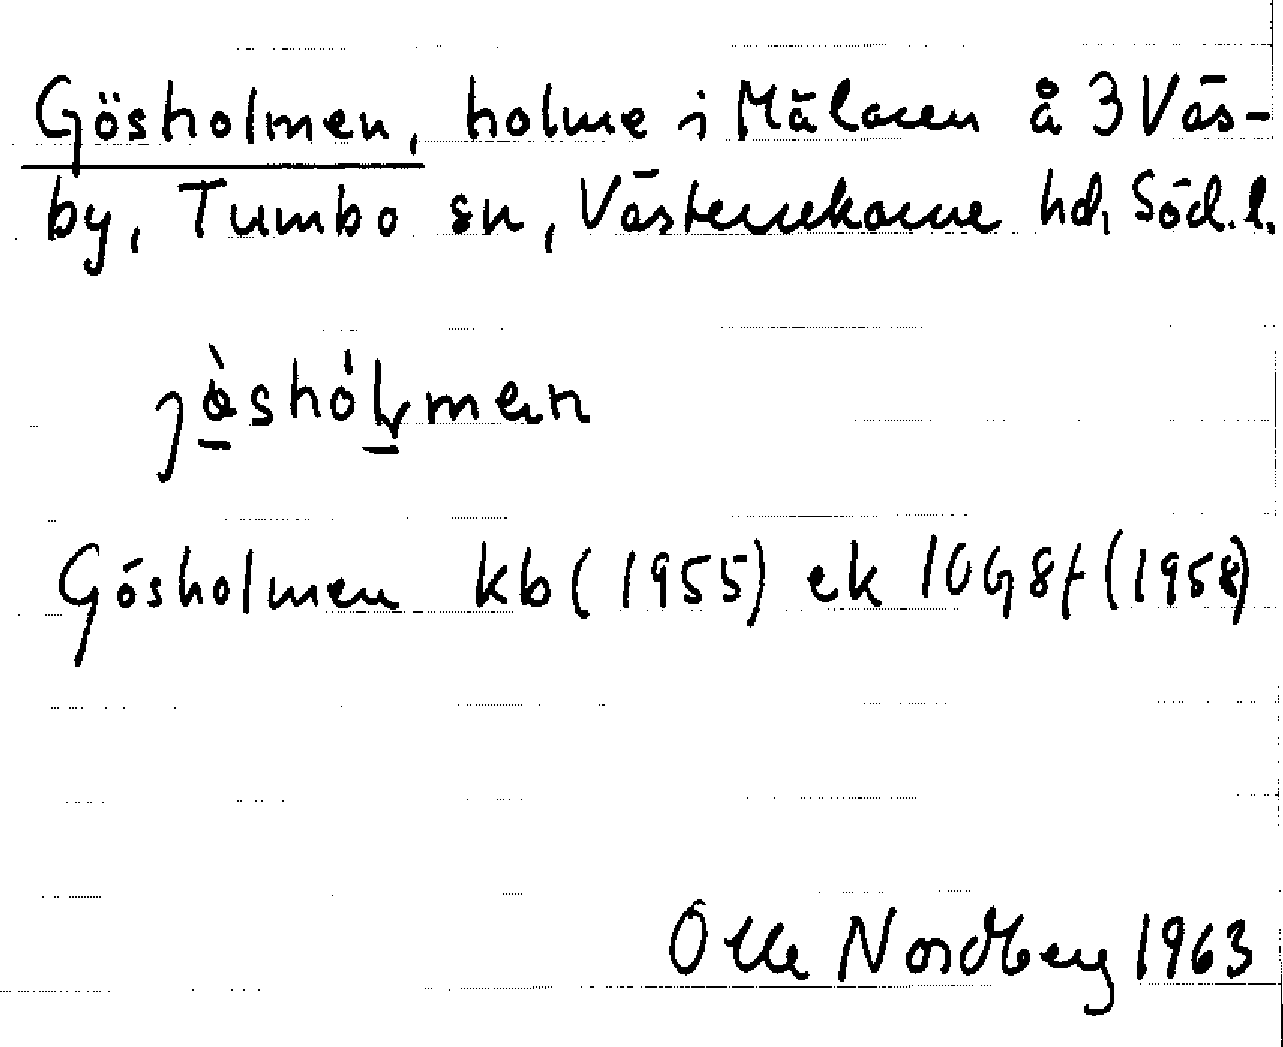 Gösholmen, holme i Mälaren å 3 Väs-
by, Tumbo sn, Västerrekarne hd, Söd. l.
Gösholmen kb (1955) ek 10G8f (1958)
Olle Nordberg 1963